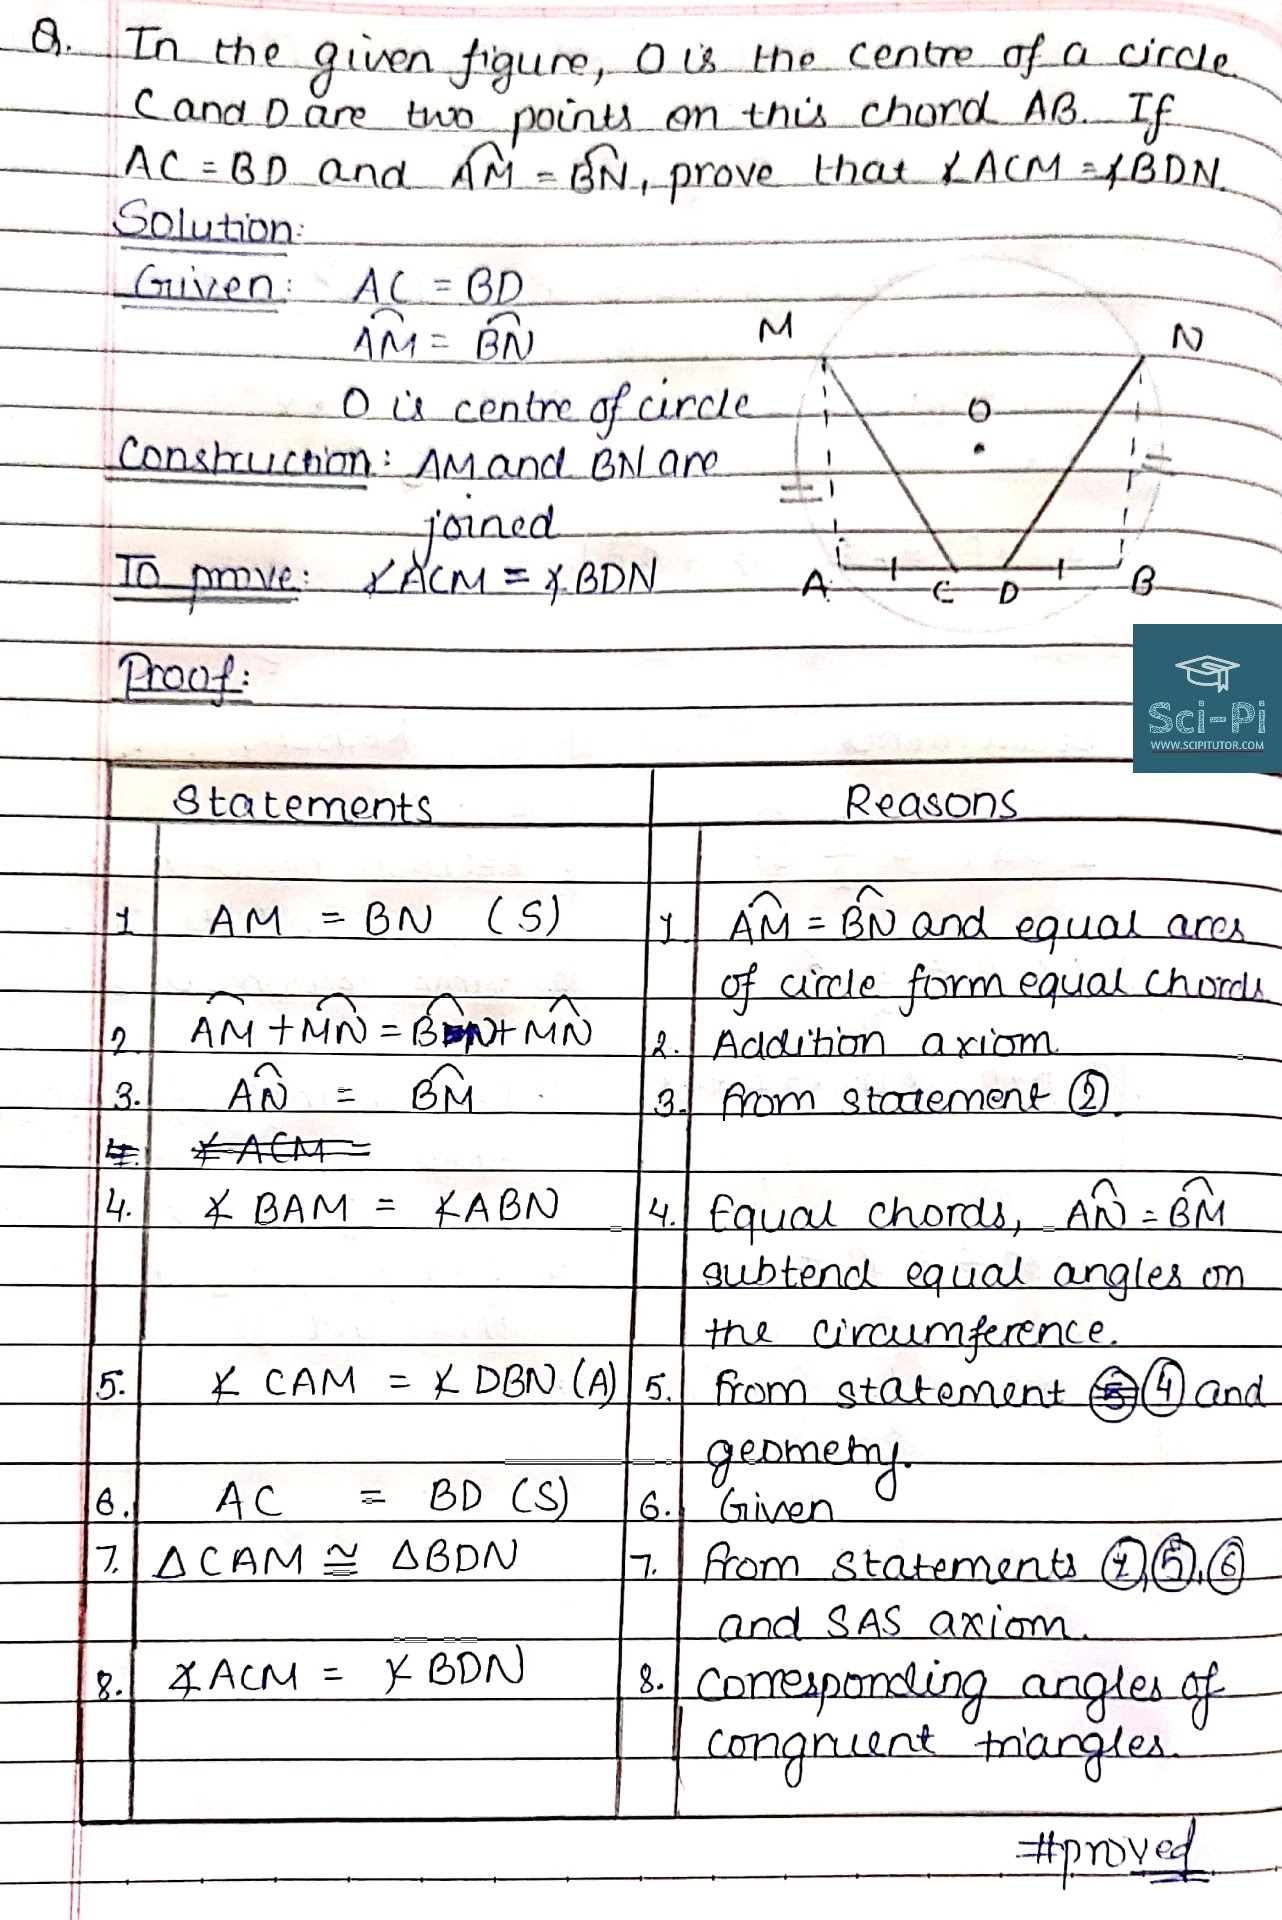 Q. In the given figure, O is the centre of a circle.
C and D are two points on this chord AB. If
AC = BD and A͡M = B͡N, prove that ∡ACM = ∡BDN.
Solution:
Given: AC = BD
A͡M = B͡N
O is centre of circle
Construction: AM and BN are
joined
To prove: ∡ACM = ∡BDN
M
N
O
A
C
D
B
Proof:
Sci-Pi
WWW.SCIPITUTOR.COM
Statements Reasons
1 AM = BN (S) 1. A͡M = B͡N and equal arcs
of circle form equal chords
2 A͡M + M͡N = B͡N + M͡N 2. Addition axiom
3. A͡N = B͡M 3. From statement ②.
4. ∡ACM =
4. ∡BAM = ∡ABN 4. Equal chords, A͡N = B͡M
subtend equal angles on
the circumference.
5. ∡CAM = ∡DBN (A) 5. From statement ④ and
geometry.
6. AC = BD (S) 6. Given
7. ΔCAM ≅ ΔBDN 7. From statements ①,⑤,⑥
and SAS axiom.
8. ∡ACM = ∡BDN 8. Corresponding angles of
congruent triangles.
#proved